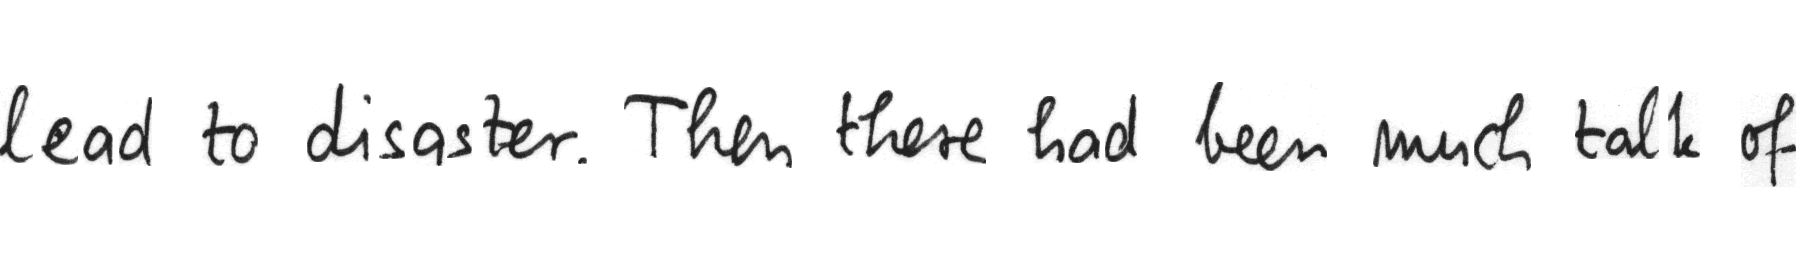 lead to disaster. Then there had been much talk of